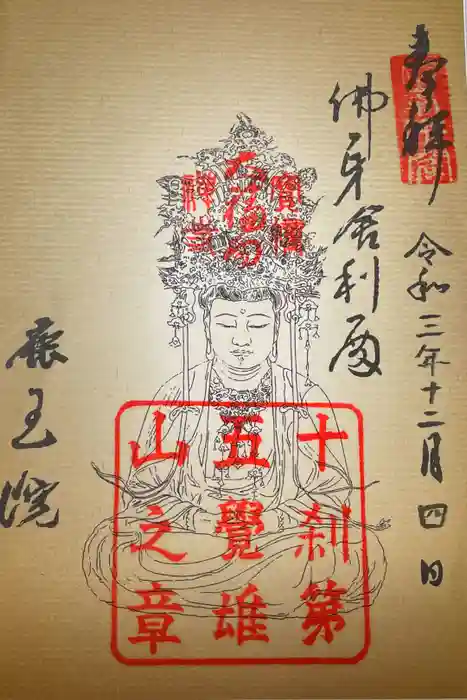 奉拝
令和三年十二月四日
佛牙舎利殿
寶幢
大福田
禅寺
十刹第
五覺雄
山之章
鹿王院